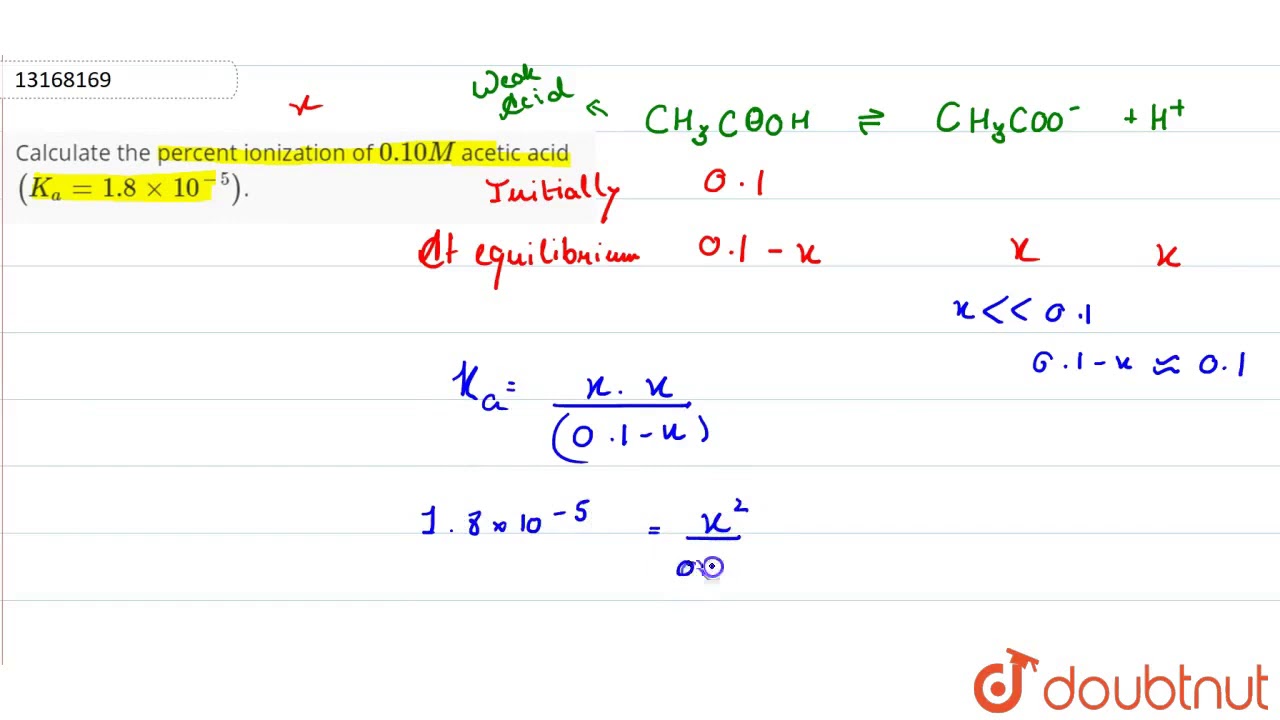 13168169
x
Calculate the percent ionization of 0.10M acetic acid
(Kₐ = 1.8 × 10⁻⁵).
Weak
Acid
CH₃COOH ⇌ CH₃COO⁻ + H⁺
Initially 0.1
At equilibrium 0.1 - x x x
x << 0.1
0.1 - x ≈ 0.1
Kₐ = x . x
(0.1 - x)
1.8 × 10⁻⁵ = x²
0
doubtnut